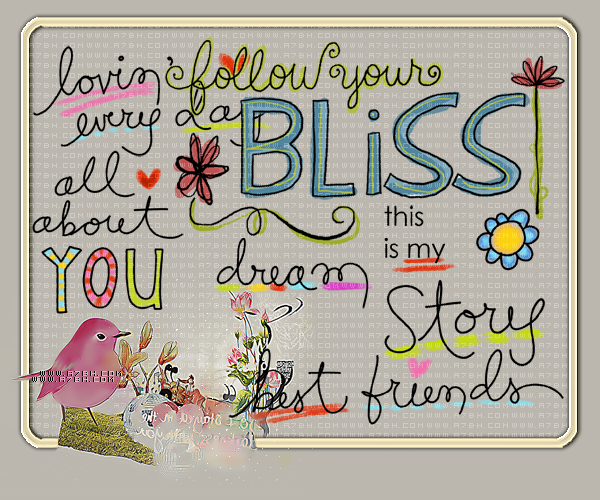 lovin'
every day
all
about
YOU
follow your
BLiSS
this
is my
dream
Story
best friends
WWW.A7BH.COM
WWW.A7BH.COM